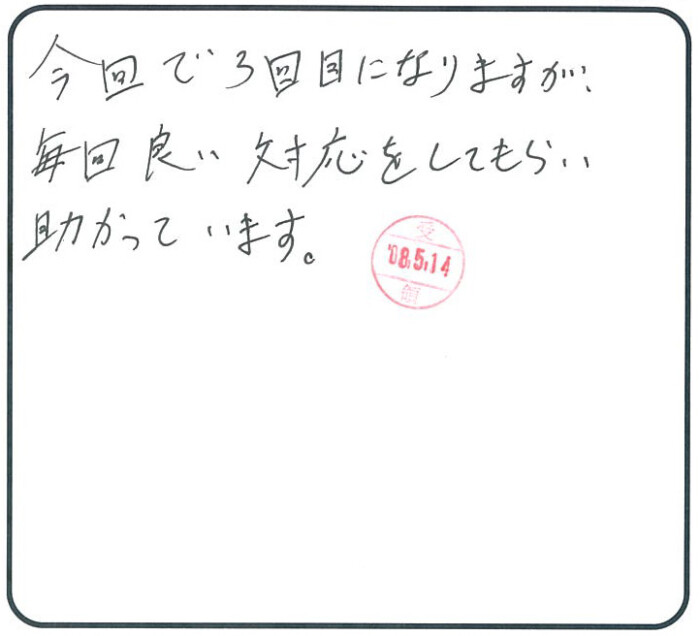 今回で3回目になりますが、
毎回良い対応をしてもらい
助かっています。
受
'08.5.14
領